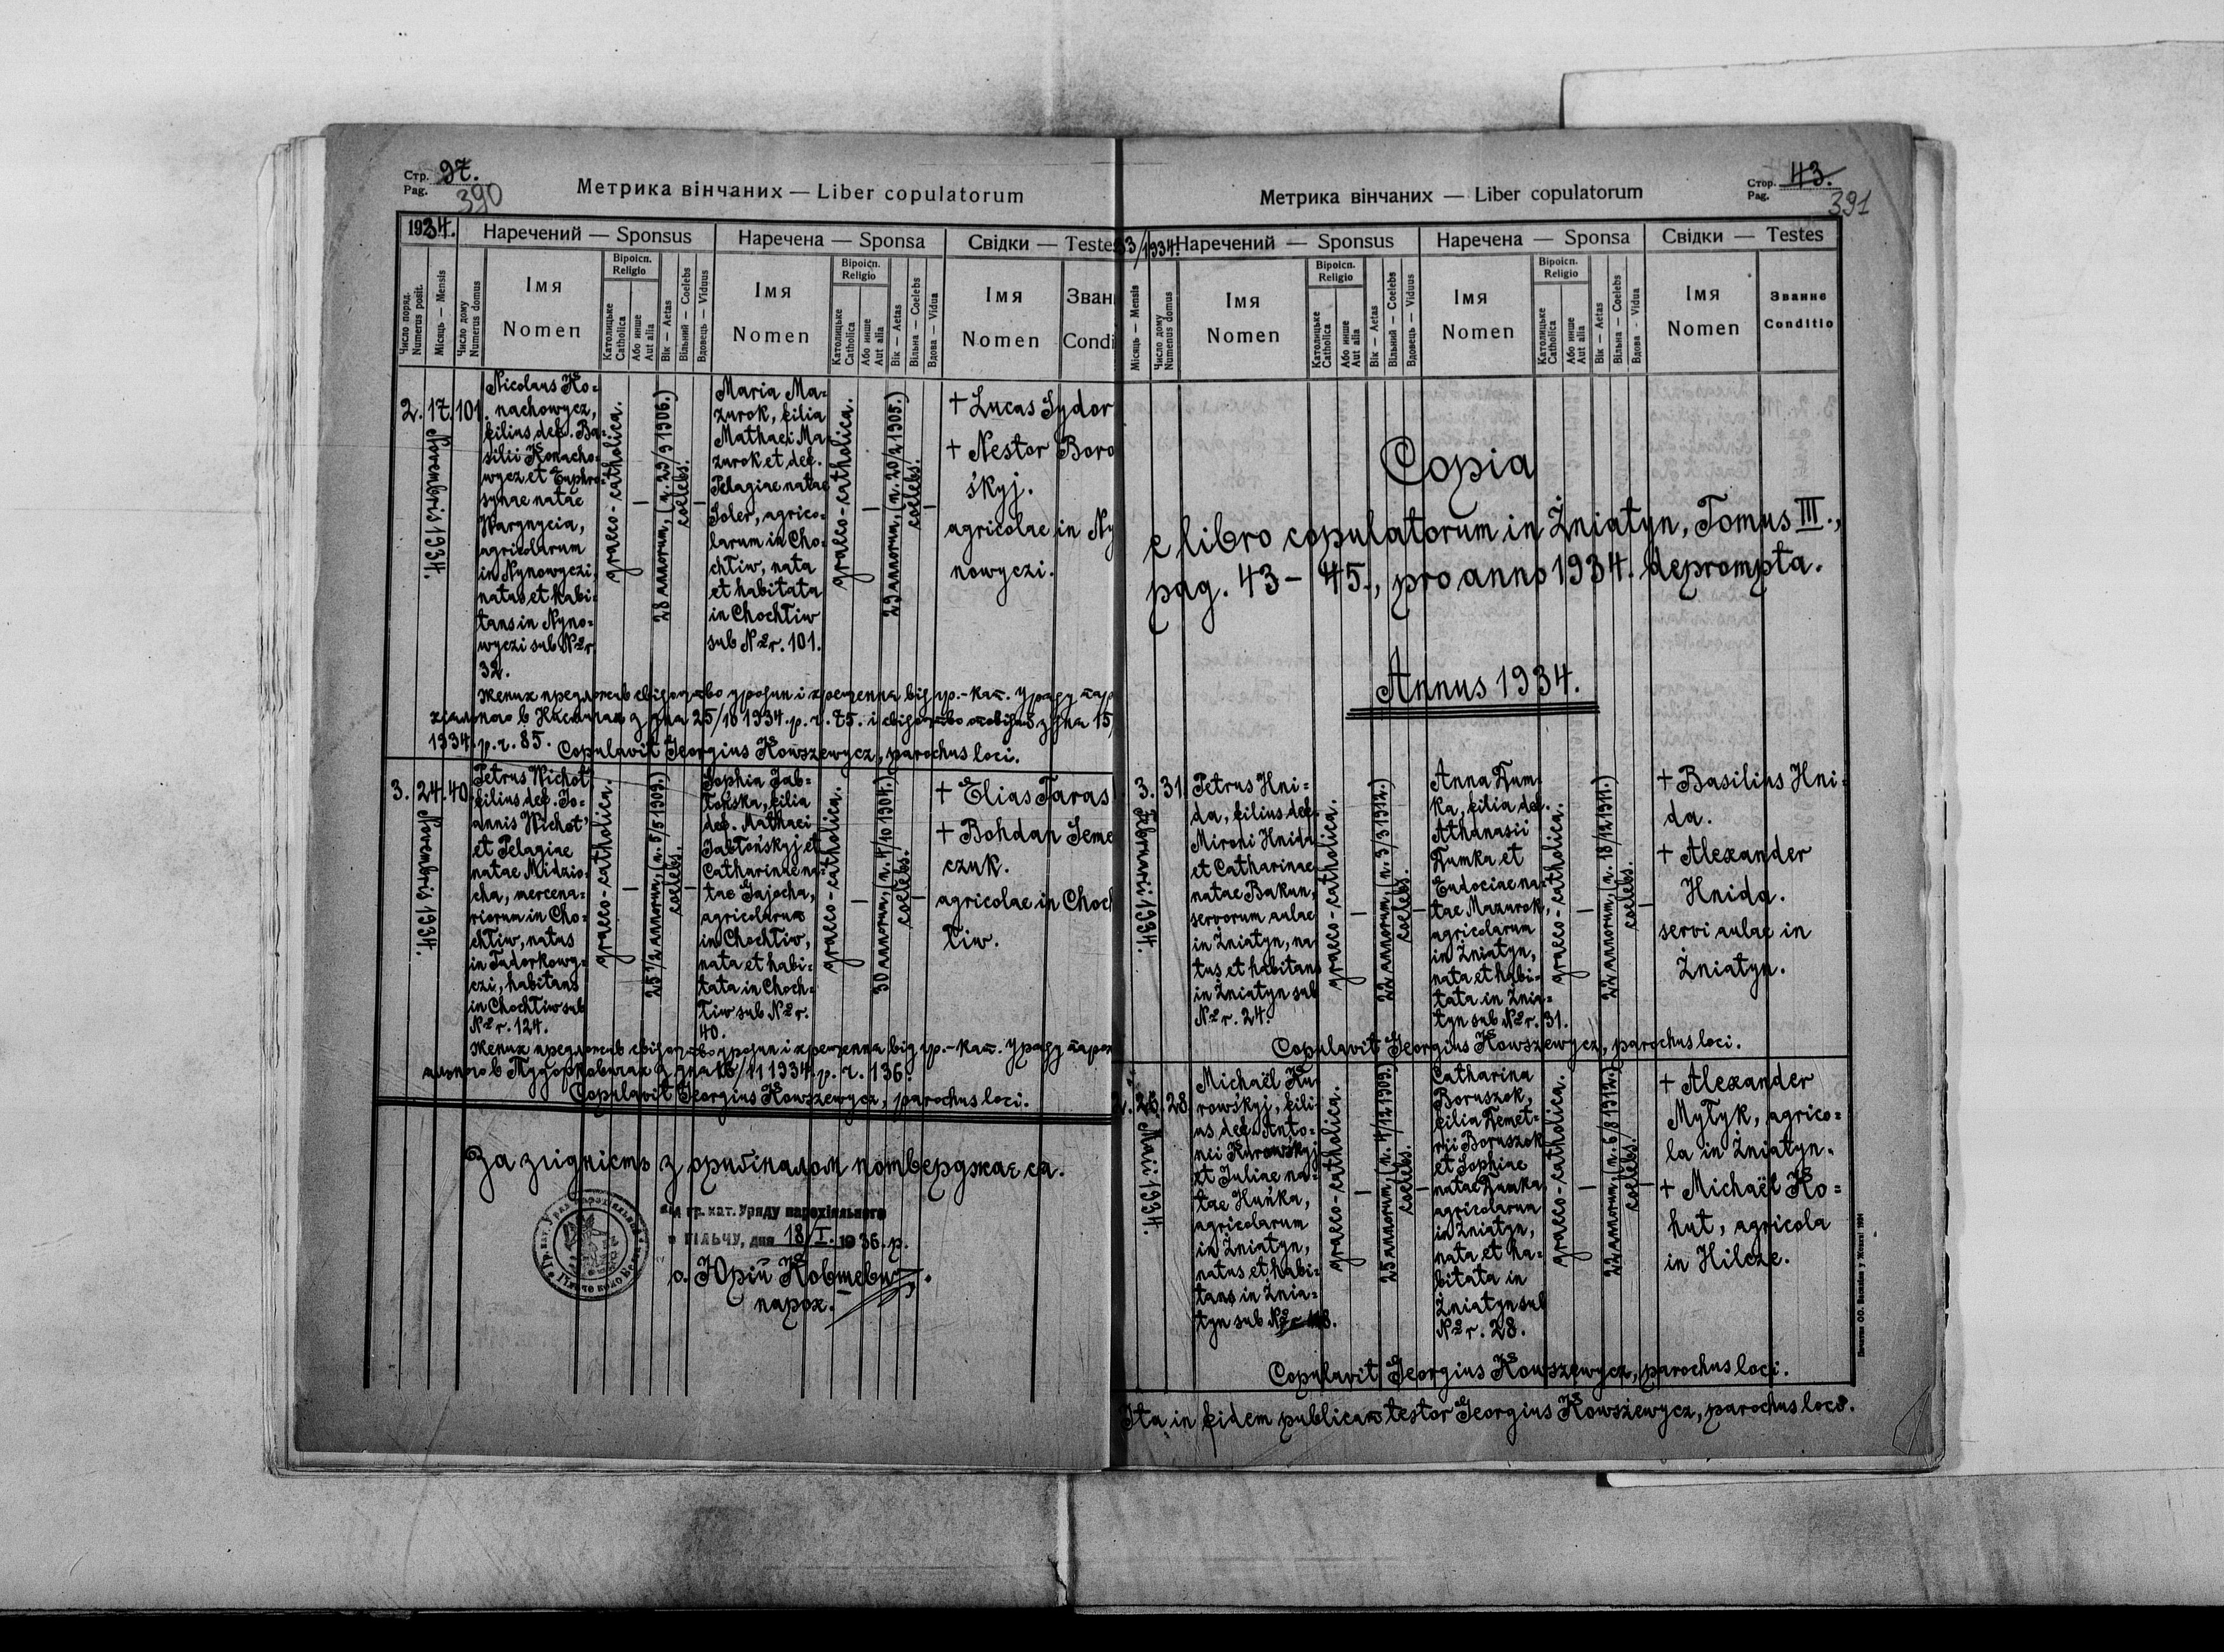 Стр. 97.
Pag. 390
Метрика вінчаних — Liber copulatorum
1934.
Наречений — Sponsus
Наречена — Sponsa
Свідки — Testes
Число поряд.
Numerus posit.
Місяць — Mensis
Число дому
Numerus domus
Імя
Nomen
Віроісп.
Religio
Католицьке
Catholica
Або инше
Aut alia
Вік — Aetas
Вільний — Coelebs
Вдовець — Viduus
Імя
Nomen
Віроісп.
Religio
Католицьке
Catholica
Або инше
Aut alia
Вік — Aetas
Вільна — Coelebs
Вдова — Vidua
Імя
Nomen
Зван
Condi
2. 17. 101.
Novembris 1934.
Nicolaus Ko=
nachowycz,
filius def. Ba=
silii Konacho=
wycz et Euphro=
synae natae
Warynycia,
agricolarum
in Nynowyczi,
natus et habi=
tans in Nyno=
wyczi sub Nr.
32.
graeco-catholica.
—
28 annorum, (n. 29/9 1906.)
coelebs.
—
Maria Ma=
zurok, filia
Mathaei Ma=
zurok et def.
Pelagiae natae
Soler, agrico=
larum in Cho=
chłiw, nata
et habitata
in Chochłiw
sub Nr. 101.
graeco-catholica.
—
29 annorum, (n. 20/2 1905.)
coelebs.
—
+ Lucas Sydor
+ Nestor Boro
śkyj.
agricolae in Ny
nowyczi.
Жених предложив свідоцтво уродин і хрещення від гр.-кат. Уряду пар
1934. р. ч. 85. Copulavit Georgius Kowszewycz, parochus loci.
3. 24. 40.
Novembris 1934.
Petrus Wichot'
filius def. Jo=
annis Wichot'
et Pelagiae
natae Midzio=
cha, mercena=
riorum in Cho=
chłiw, natus
in Tudorkowy=
czi, habitans
in Chochłiw sub
Nr. 124.
graeco-catholica.
—
25 1/2 annorum, (n. 5/5 1909.)
coelebs.
—
Sophia Jab=
łońska, filia
def. Mathaei
Jabłońskyj et
Catharinae na=
tae Gajocha,
agricolarum
in Chochłiw,
nata et habi=
tata in Choch=
łiw sub Nr.
40.
graeco-catholica.
—
30 annorum, (n. 4/10 1904.)
coelebs.
—
+ Elias Taras
+ Bohdan Seme
czuk.
agricolae in Choch
łiw.
Жених предложив свідоцтво уродин і хрещення від гр.-кат. Уряду парох
ального в Тудорковичах з дня 16/11 1934. р. ч. 136.
Copulavit Georgius Kowszewycz, parochus loci.
За згідність з оригіналом потверджає ся.
Від гр. кат. Уряду парохіяльного
в ГІЛЬЧУ, дня 18/I. 1936. р.
о. Юрій Ковшевич.
парох.
Стор. 43.
Pag. 391
Метрика вінчаних — Liber copulatorum
33/1934.
Наречений — Sponsus
Наречена — Sponsa
Свідки — Testes
Місяць — Mensis
Число дому
Numerus domus
Імя
Nomen
Віроісп.
Religio
Католицьке
Catholica
Або инше
Aut alia
Вік — Aetas
Вільний — Coelebs
Вдовець — Viduus
Імя
Nomen
Віроісп.
Religio
Католицьке
Catholica
Або инше
Aut alia
Вік — Aetas
Вільна — Coelebs
Вдова - Vidua
Імя
Nomen
Званне
Conditio
Copia
e libro copulatorum in Żniatyn, Tomus III.,
pag. 43 - 45., pro anno 1934. deprompta.
Annus 1934.
3. 31.
Februarii 1934.
Petrus Hni=
da, filius def.
Mironi Hnida
et Catharinae
natae Bakun,
servorum aulae
in Żniatyn, na
tus et habitans
in Żniatyn sub
Nr. 24.
graeco-catholica.
—
22 annorum, (n. 3/3 1912.)
coelebs.
—
Anna Dum=
ka, filia def.
Athanasii
Dumka et
Eudociae na=
tae Mazurok,
agricolarum
in Żniatyn,
nata et habi=
tata in Żnia=
tyn sub Nr. 31.
graeco-catholica.
—
22 annorum, (n. 18/12 1911.)
coelebs.
—
+ Basilius Hni=
da.
+ Alexander
Hnida.
servi aulae in
Żniatyn.
Copulavit Georgius Kowszewycz, parochus loci.
2. 26. 28.
Maii 1934.
Michaël Ku=
rowśkyj, fili=
us def. Anto=
nii Kurowśkyj
et Juliae na=
tae Huńka,
agricolarum
in Żniatyn,
natus et habi=
tans in Żnia=
tyn sub Nr 118.
graeco-catholica.
—
25 annorum, (n. 4/12 1909.)
coelebs.
—
Catharina
Boruszok,
filia Demet=
rii Boruszok
et Sophiae
natae Dumka
agricolarum
in Żniatyn,
nata et ha=
bitata in
Żniatyn sub
Nr. 28.
graeco-catholica.
—
22 annorum, (n. 6/8 1912.)
coelebs.
—
+ Alexander
Mytyk, agrico=
la in Żniatyn.
+ Michaël Ko=
hut, agricola
in Hilcze.
Copulavit Georgius Kowszewycz, parochus loci.
Ita in fidem publicam testor Georgius Kowszewycz, parochus loci.
Печатня ОО. Василіян у Жовкві 1934